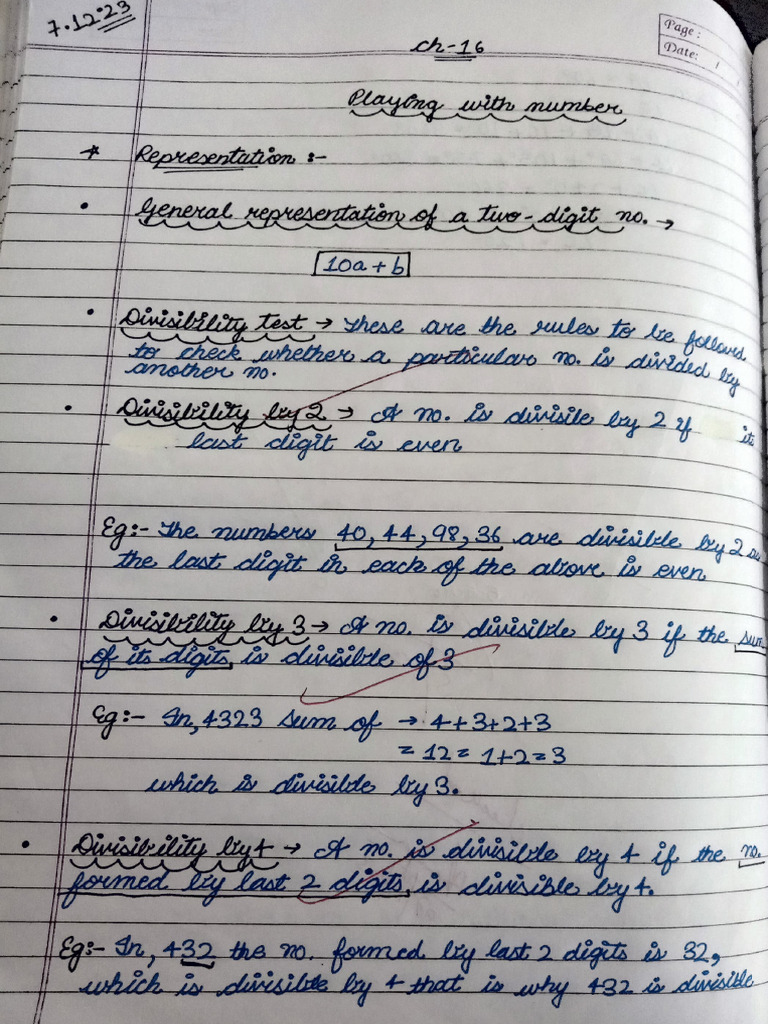 7.12.23
Page :
Date: / /
ch-16
Playing with number
* Representation :-
• General representation of a two-digit no. →
10a + b
• Divisibility test → These are the rules to be followed
to check whether a particular no. is divided by
another no.
• Divisibility by 2 → A no. is divisile by 2 if its
last digit is even
Eg:- The numbers 40, 44, 98, 36 are divisible by 2 as
the last digit in each of the above is even
• Divisibility by 3 → A no. is divisible by 3 if the sum
of its digits is divisible of 3
Eg:- In, 4323 sum of → 4+3+2+3
= 12 = 1+2=3
which is divisible by 3.
• Divisibility by 4 → A no. is divisible by 4 if the no.
formed by last 2 digits, is divisible by 4.
Eg:- In, 432 the no. formed by last 2 digits is 32,
which is divisible by 4 that is why 432 is divisible